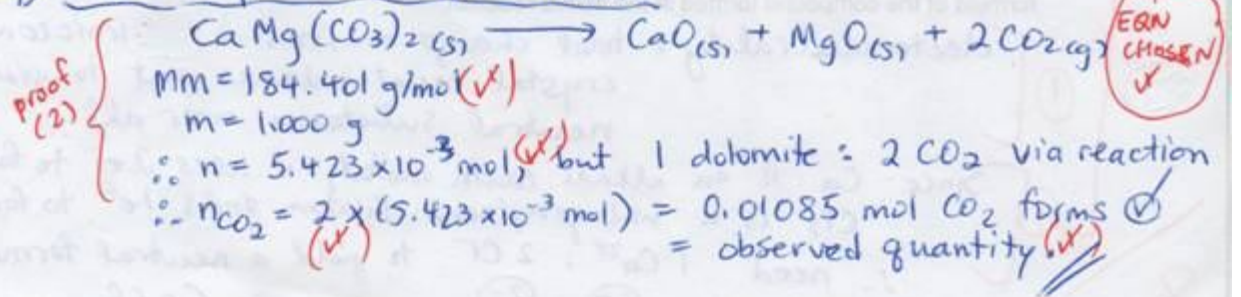 CaMg(CO3)2(s) → CaO(s) + MgO(s) + 2CO2(g)
EQN CHOSEN ✓
proof (2)
Mm = 184.401 g/mol (✓)
m = 1.000 g
∴ n = 5.423x10⁻³ mol, (✓) but 1 dolomite : 2 CO2 via reaction
∴ nCO2 = 2 x (5.423x10⁻³ mol) = 0.01085 mol CO2 forms ✓
(✓)
= observed quantity. (✓)